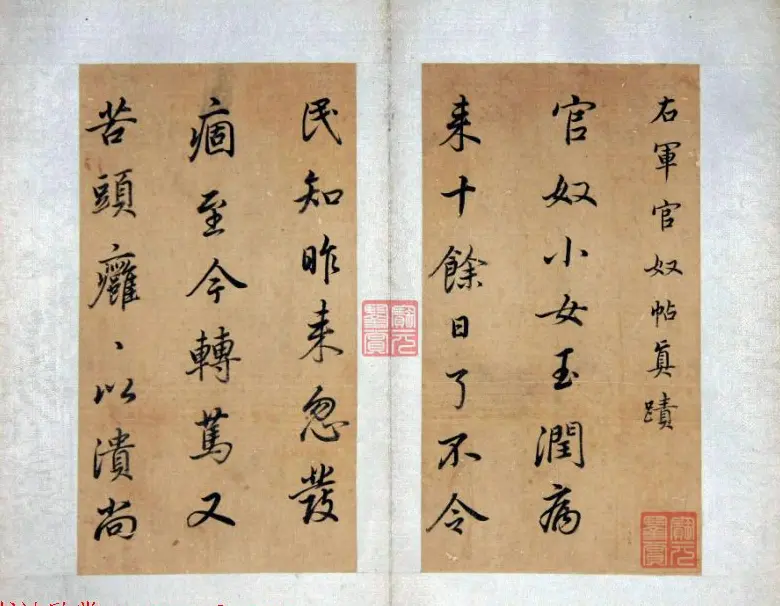 右軍官奴帖真蹟
官奴小女玉潤病
来十餘日了不令
民知昨来忽發
痼至今轉篤又
苦頭癰、以潰尚